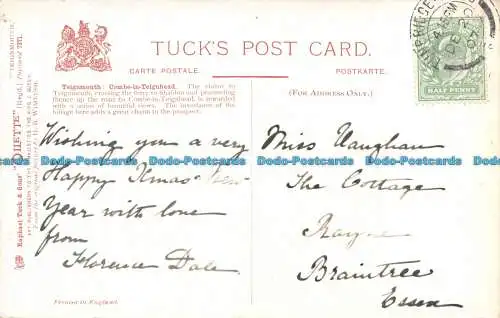 TUCK'S POST CARD.
CARTE POSTALE. POSTKARTE.
(FOR ADDRESS ONLY.)
Teignmouth: Combe-in-Teignhead. The visitor to
Teignmouth, crossing the ferry to Shaldon and proceeding
thence up the road to Combe-in-Teignhead, is rewarded
with a series of beautiful views. The
village here adds a great charm to the prospect.
Wishing you a very
Happy Xmas New
Year with love
from
Florence Dale
Miss Vaughan
The Cottage
Rayne
Braintree
Essex
HALF PENNY
DE 20
Printed in England.
"TEIGNMOUTH."
Raphael Tuck & Sons' "OILETTE" [Regd.] Postcard
Dodo-Postcards Dodo-Postcards Dodo-Postcards Dodo-Postcards